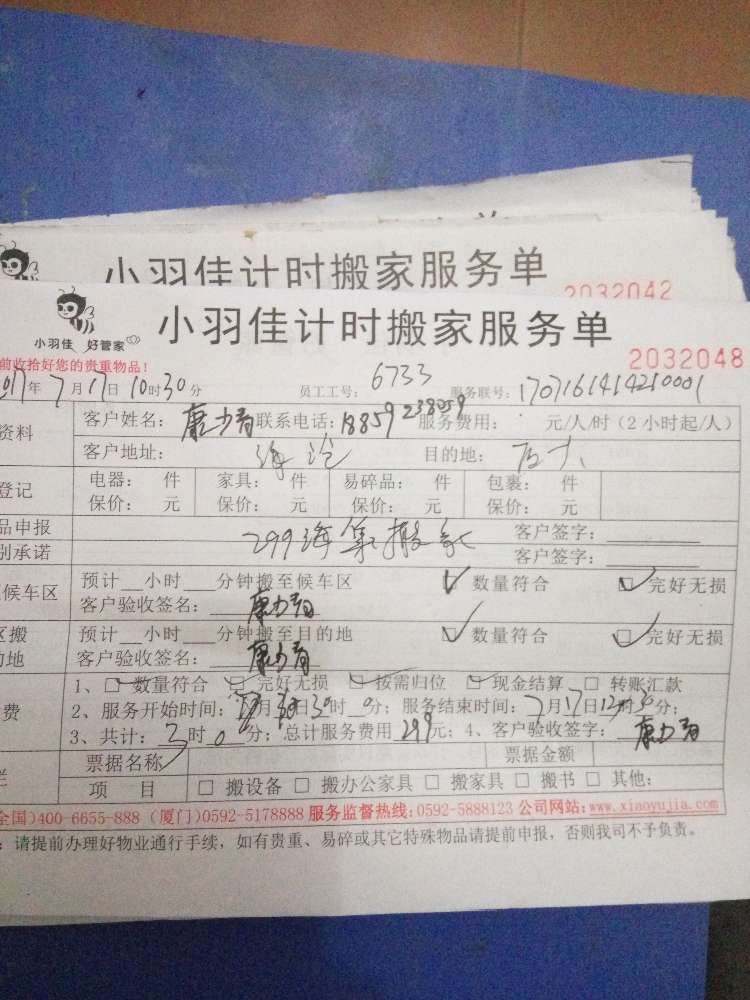 小羽佳计时搬家服务单
2032042
小羽佳 好管家
小羽佳计时搬家服务单
2032048
前收拾好您的贵重物品!
017年7月17日10时30分 员工工号: 6733 服务联号: 1707161414210001
资料 客户姓名: 联系电话: 18859238059 服务费用: 元/人/时(2小时起/人)
客户地址: 海沧 目的地:
登记 电器: 件 家具: 件 易碎品: 件 包裹: 件
保价: 元 保价: 元 保价: 元 保价: 元
品申报 客户签字:
299海 搬家
别承诺 客户签字:
候车区 预计__小时__分钟搬至候车区 数量符合 完好无损
客户验收签名:
区搬 预计__小时__分钟搬至目的地 数量符合 完好无损
的地 客户验收签名:
1、 数量符合 完好无损 按需归位 现金结算 □ 转账汇款
费 2、服务开始时间: 月 30时 0分; 服务结束时间: 7月17日 分;
3、共计: 3时0分; 总计服务费用299元; 4、客户验收签字:
票据名称 票据金额
栏 项 目 □ 搬设备 □ 搬办公家具 □ 搬家具 □ 搬书 □ 其他:
全国)400-6655-888 (厦门)0592-5178888 服务监督热线:0592-5888123 公司网站:www.xiaoyujia.com
:请提前办理好物业通行手续,如有贵重、易碎或其它特殊物品请提前申报,否则我司不予负责。